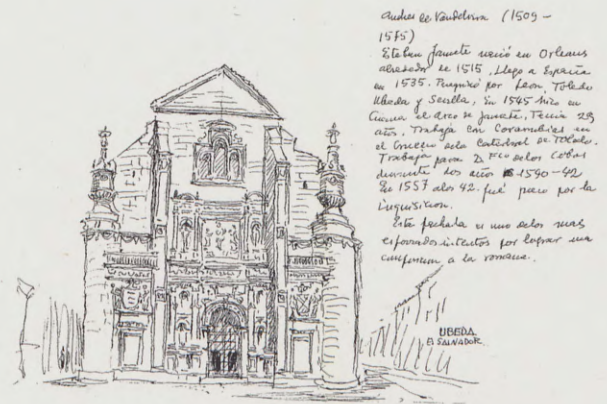 Andres de Vandelvira (1509–
1575)
Esteban Jamete nació en Orleans
alrededor de 1515, llego a España
en 1535. Peregrinó por Leon, Toledo
Ubeda y Sevilla, En 1545 hizo en
Cuenca el arco de Jamete, Tenia 29
años, Trabaja con Covarrubias en
el Crucero dela Catedral de Toledo.
Trabaja para Dn Fco delos Cobos
durante dos años 1540-42
En 1557 alos 42 fué preso por la
inquisicion.
Esta fachada es uno delos mas
esforzados intentos por lograr una
a la romana.
UBEDA
El SALVADOR